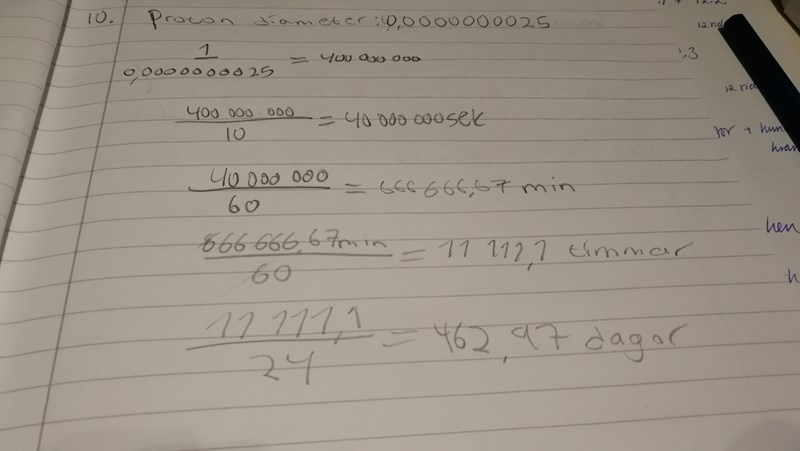 10. Proton diameter: 0,0000000025
1
0,0000000025 = 400 000 000
400 000 000
10 = 40 000 000 sek
40 000 000
60 = 666 666,67 min
666 666,67 min
60 = 11 111,1 timmar
11 111,1
24 = 462,97 dagar
12
:3
12
hen
h